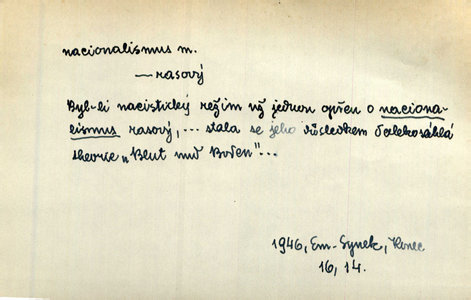 nacionalismus m.
— rasový
Byl-li nacistický režim už jednou opřen o naciona-
lismus rasový, ... stala se jeho důsledkem dalekosáhlá
theorie „Blut und Boden"...
1946, Em. Synek, Konec
16, 14.